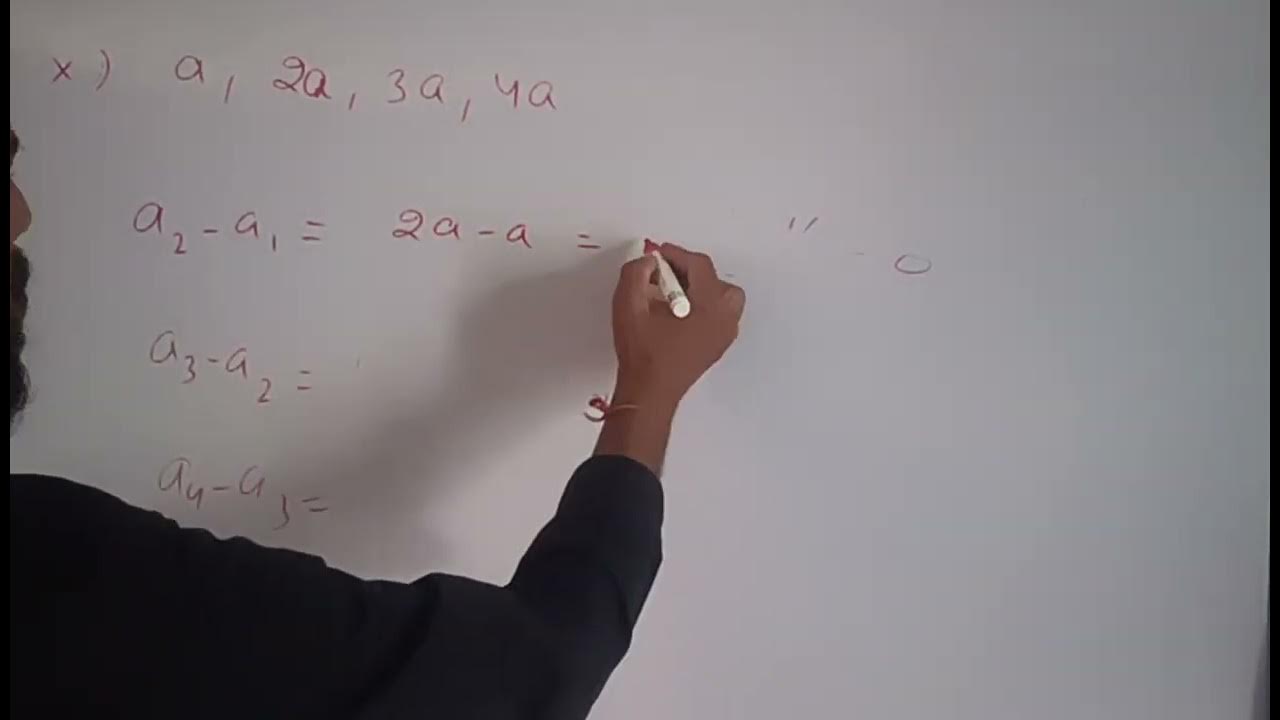 x) a, 2a, 3a, 4a
a₂ - a₁ = 2a - a =
a₃ - a₂ =
a₄ - a₃ =